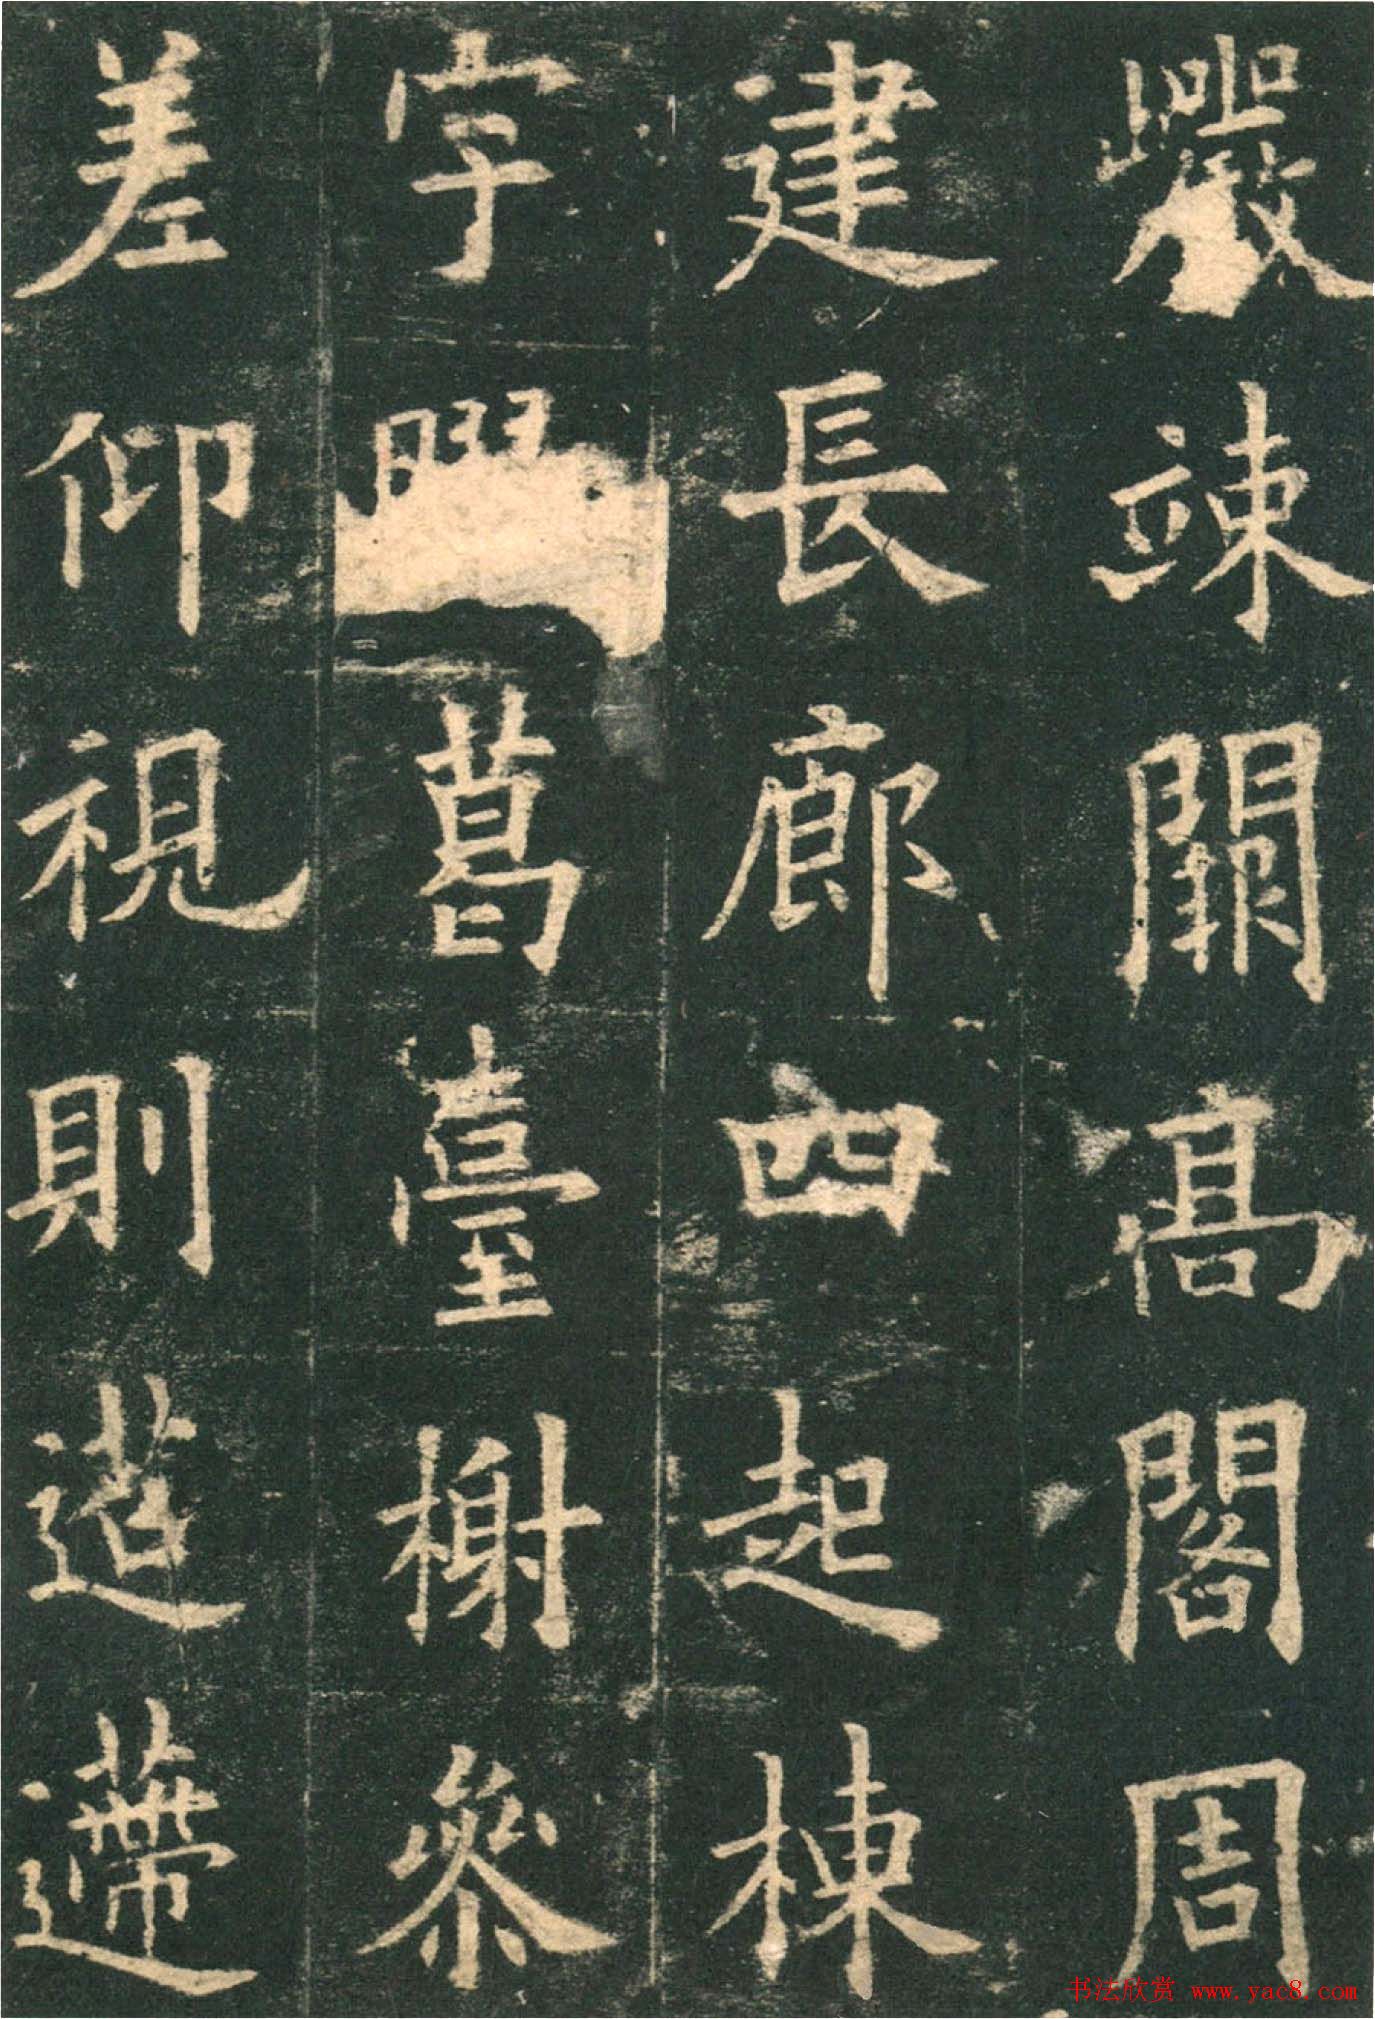 巖竦闕髙閣周
建長廊四起棟
宇葛臺榭參
差仰視則迢遰
书法欣赏 www.yac8.com